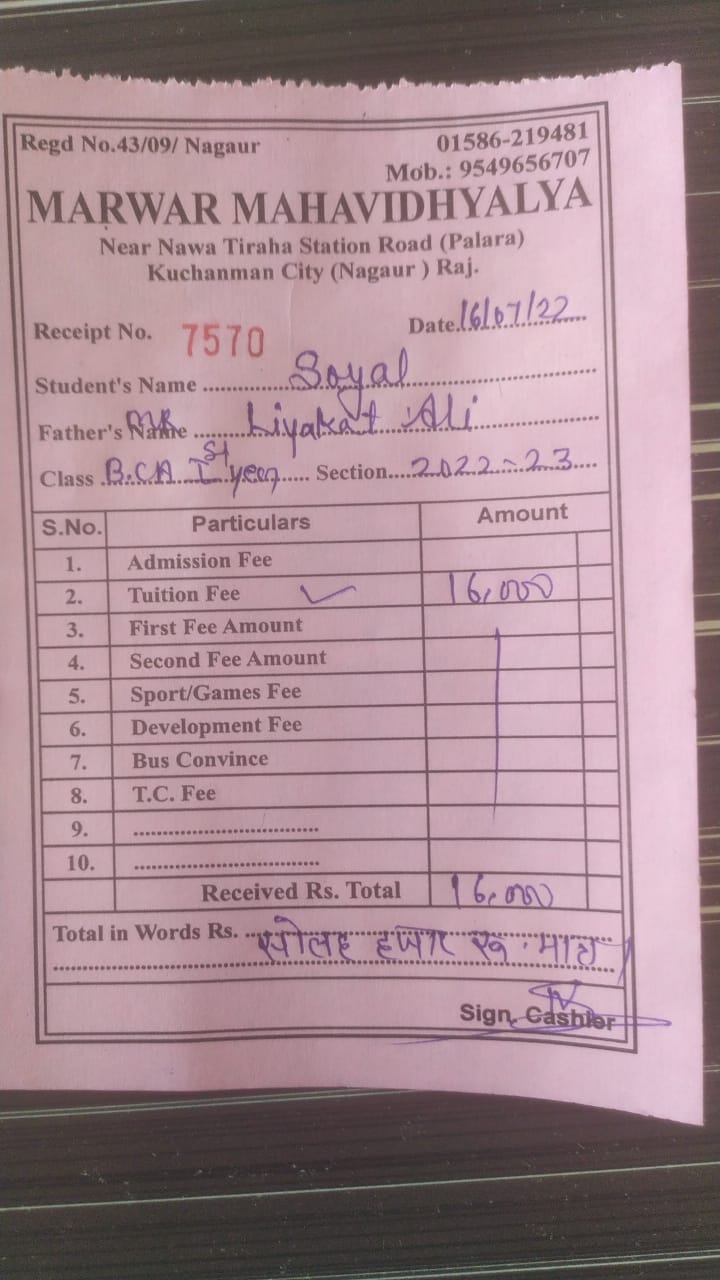 Regd No.43/09/ Nagaur 01586-219481
Mob.: 9549656707
MARWAR MAHAVIDHYALYA
Near Nawa Tiraha Station Road (Palara)
Kuchanman City (Nagaur ) Raj.
Receipt No. 7570 Date.16/07/22
Student's Name Soyal
Father's Name MR Liyakat Ali
Class B.CA Ist year Section 2022-23
S.No. Particulars Amount
1. Admission Fee
2. Tuition Fee ✓ 16,000
3. First Fee Amount
4. Second Fee Amount
5. Sport/Games Fee
6. Development Fee
7. Bus Convince
8. T.C. Fee
9.
10.
Received Rs. Total 16,000
Total in Words Rs. सोलह हजार रू. मात्र
Sign. Cashier